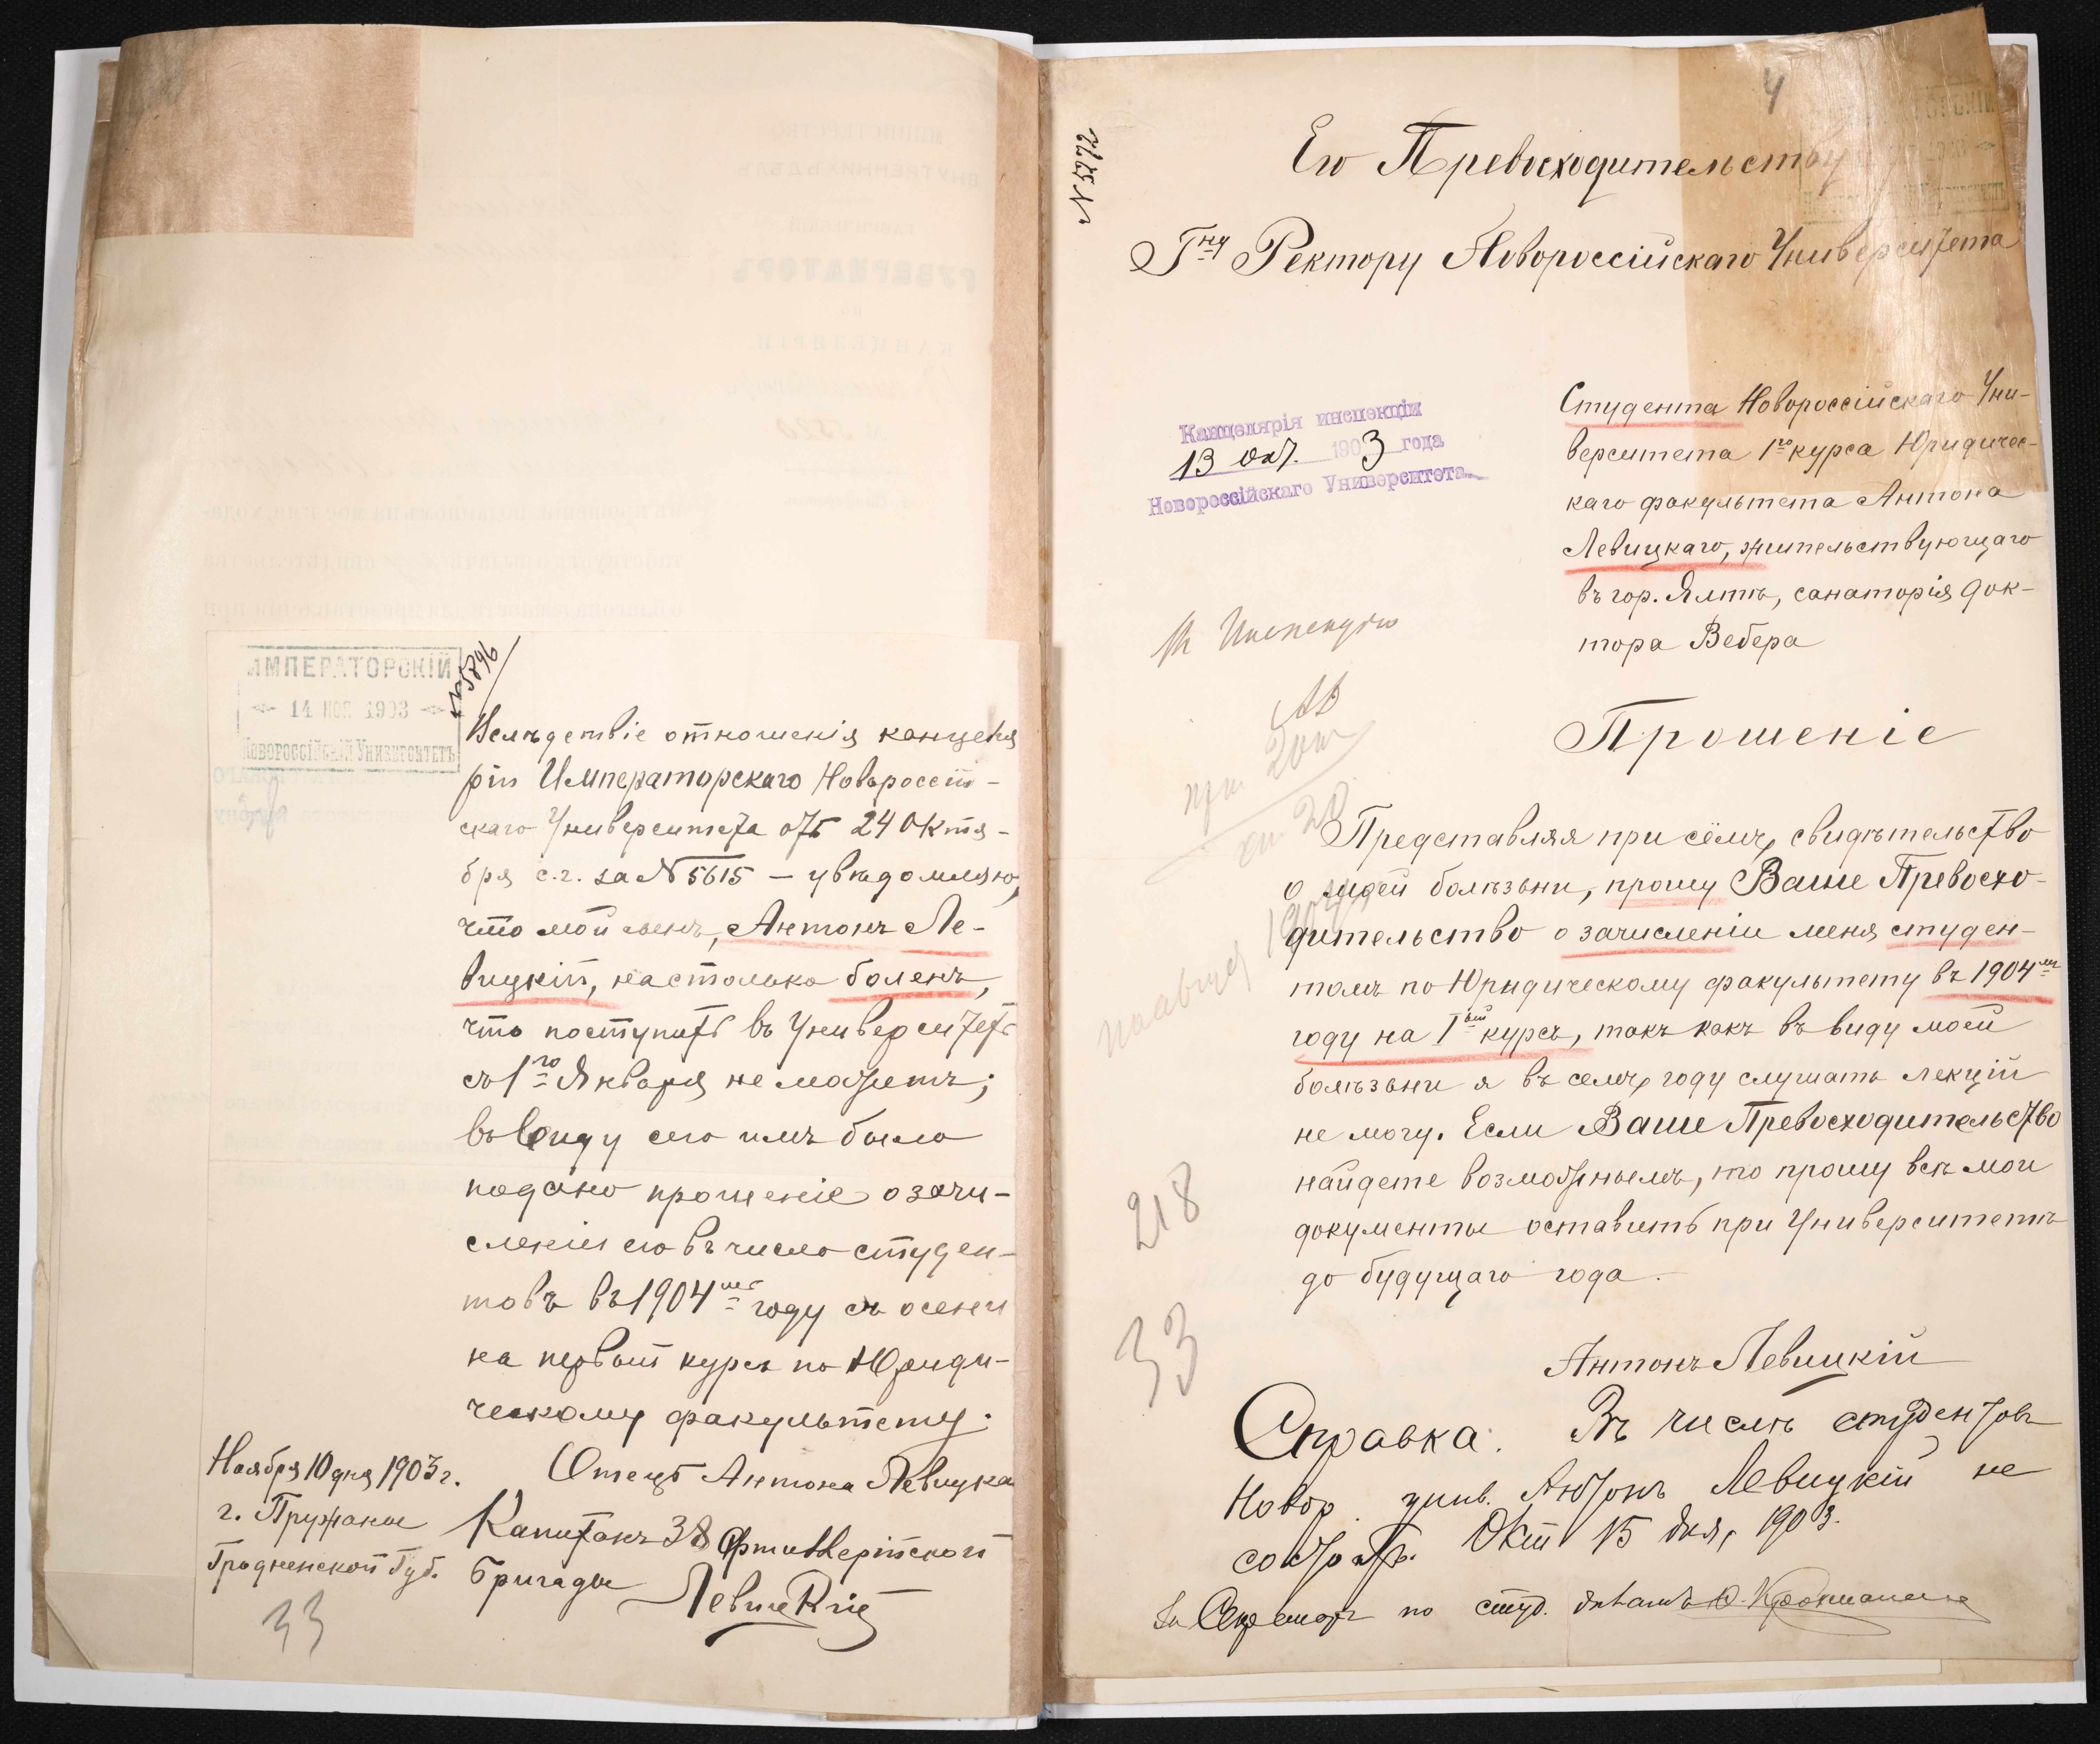 ИМПЕРАТОРСКІЙ
14 НОЯ 1903
Новороссійскій Университетъ
№ 5896
Вслѣдствіе отношенія канцеля
ріи Императорскаго Новороссій-
скаго Университета отъ 24 Октя-
бря с.г. за № 5615 – увѣдомляю,
что мой сынъ, Антонъ Ле-
вицкій, настолько боленъ,
что поступить въ Университетъ
съ 1го Января не можетъ;
въ виду сего имъ было
подано прошеніе о зачи-
сленіи его въ число студен-
товъ въ 1904мъ году съ осени
на первый курсъ по Юриди-
ческому факультету.
Ноября 10 дня 1903 г.
г. Пружаны
Гродненской Губ.
Отецъ Антона Левицка
Капитанъ 38 Артиллерійской
Бригады Левицкій
33
4
Его Превосходительству
Гну Ректору Новороссійскаго Университета
Канцелярія инспекціи
13 Окт. 1903 года
Новороссійскаго Университета.
Студента Новороссійскаго Уни-
верситета 1го курса Юридичес-
каго факультета Антона
Левицкаго, жительствующаго
въ гор. Ялтѣ, санаторія док-
тора Вебера
Прошеніе
Представляя при сёмъ, свидѣтельство
о моей болѣзьни, прошу Ваше Превосхо-
дительство о зачисленіи меня студен-
томъ по Юридическому факультету въ 1904мъ
году на 1ый курсъ, такъ какъ въ виду моей
болѣзьни я въ семъ, году слушать лекцій
не могу. Если Ваше Превосходительство
найдете возможнымъ, то прошу всѣ мои
документы оставить при Университетѣ
до будущаго года.
218
33
Антонъ Левицкій
Справка. Въ числѣ студентовъ
Новор. унив. Антонъ Левицкій не
состоитъ. Окт 15 дня, 1903.
За Секретаря по студ. дѣламъ